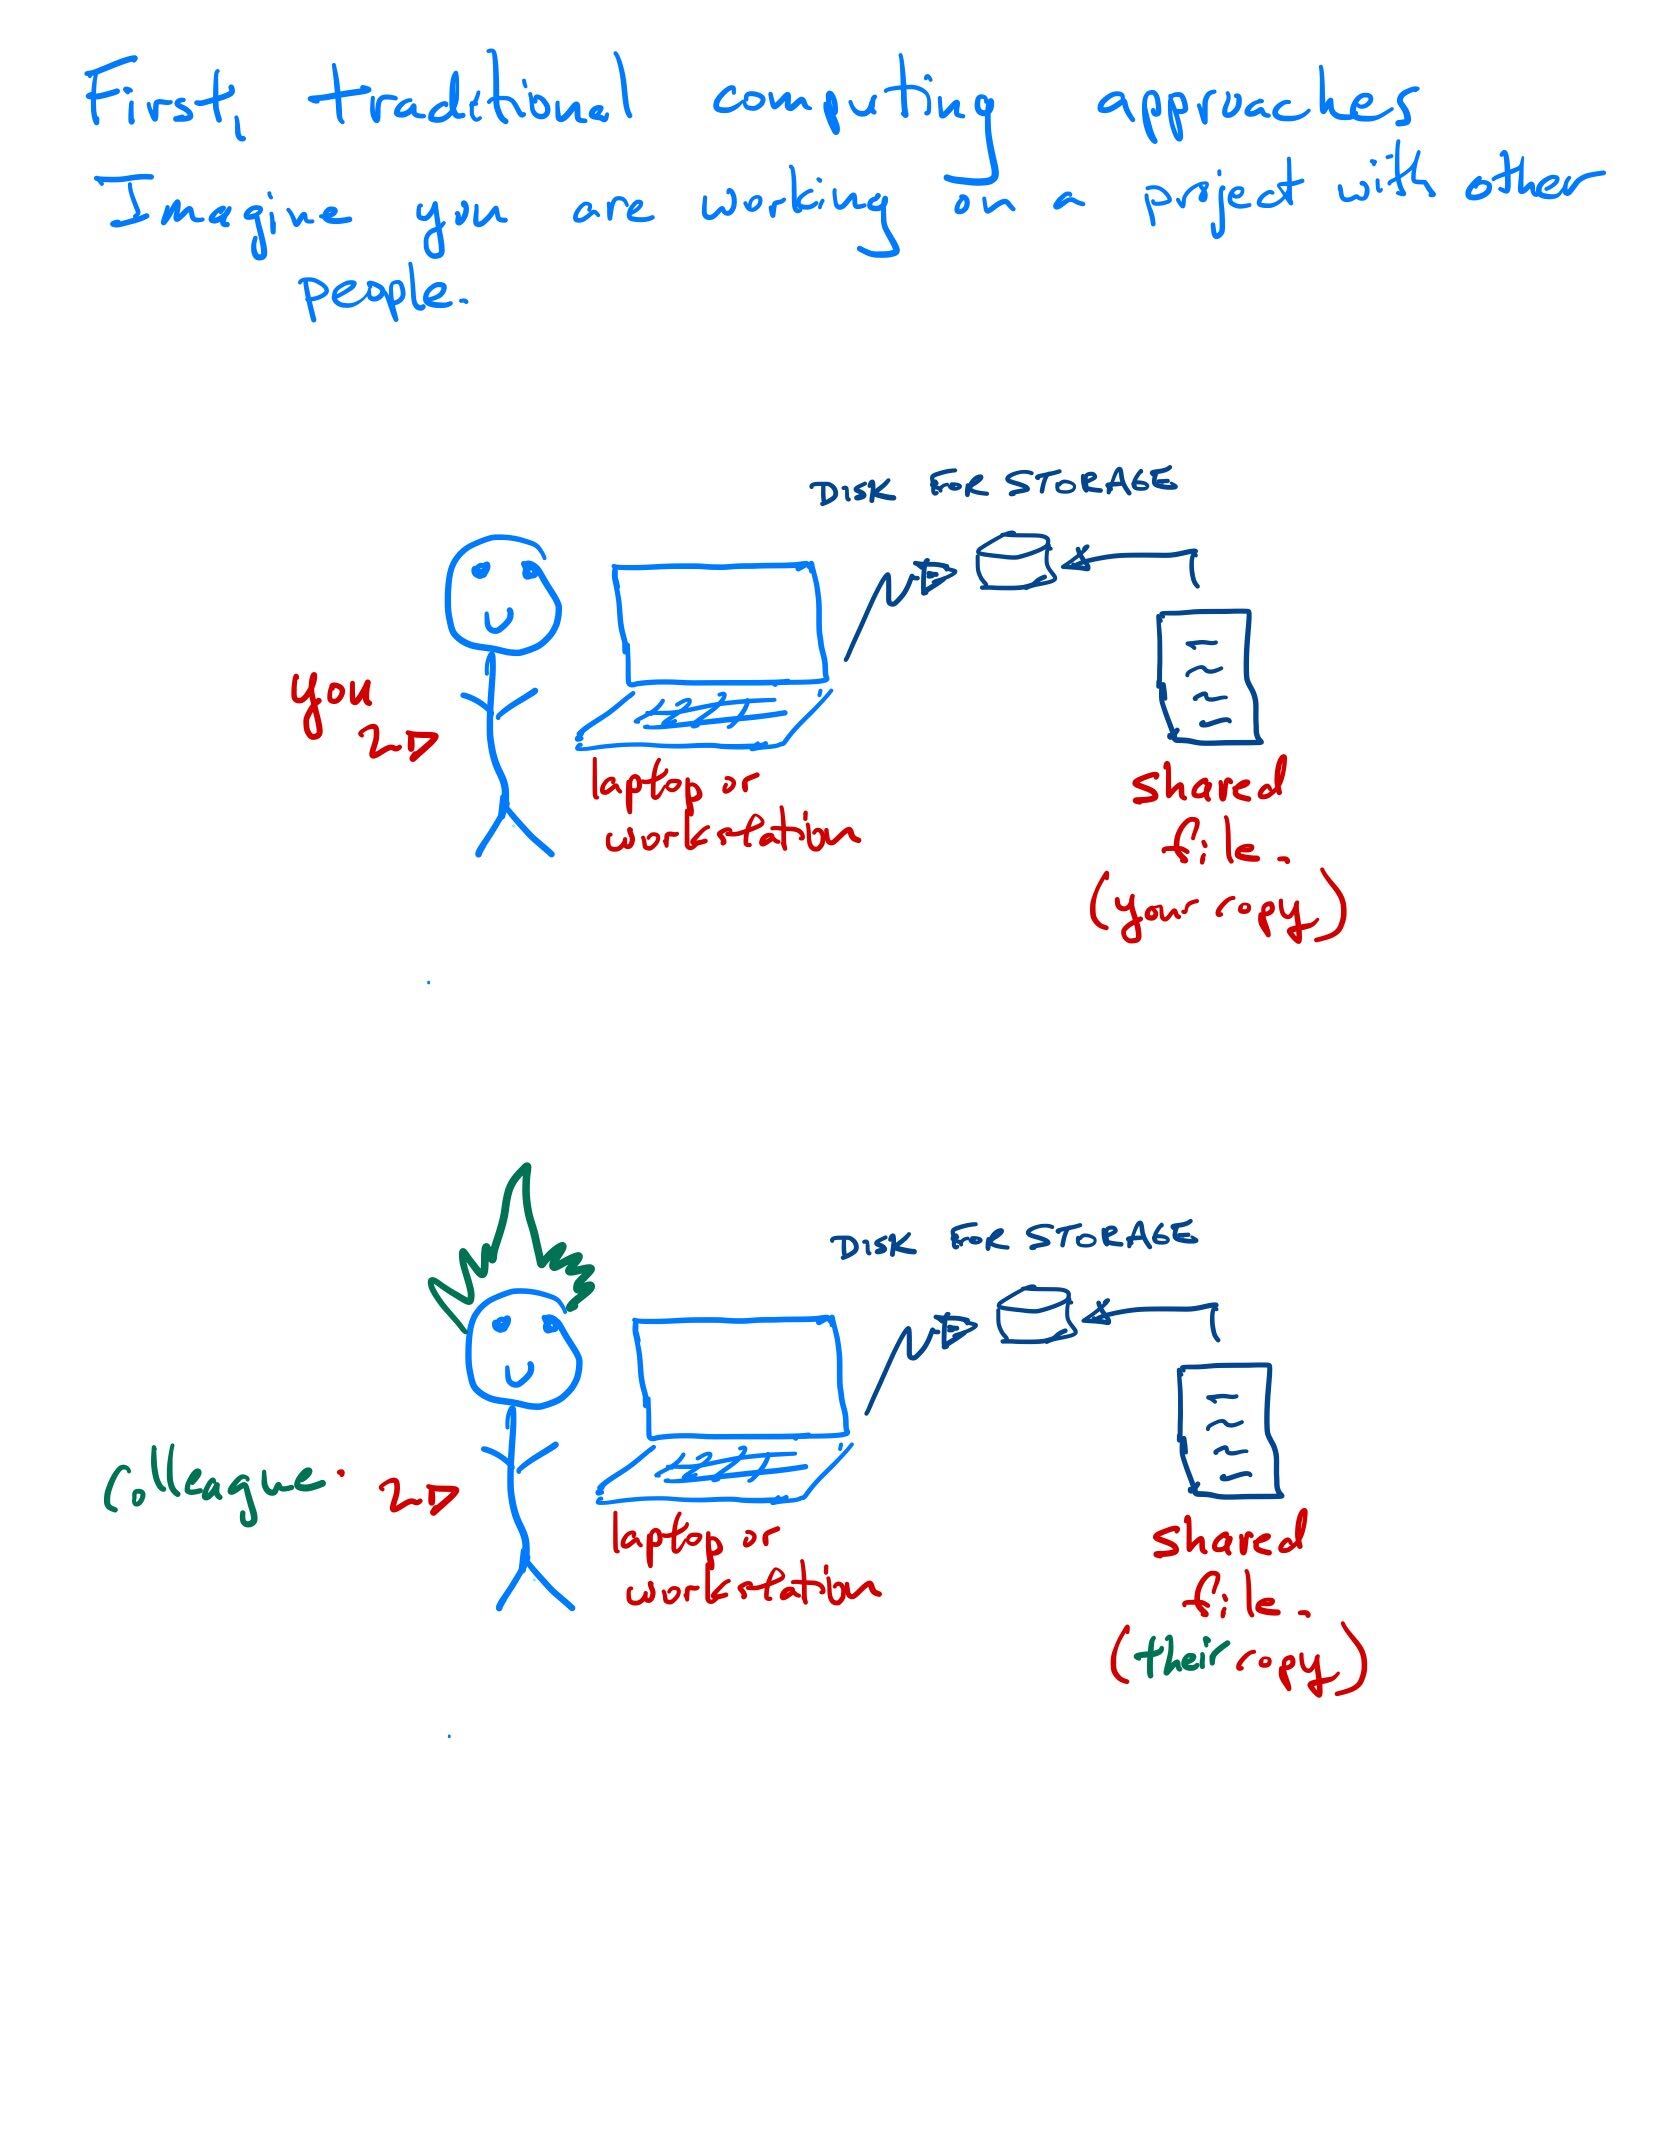 First, traditional computing approaches
Imagine you are working on a project with other
people.
DISK FOR STORAGE
you
laptop or
workstation
shared
file.
(your copy)
DISK FOR STORAGE
Colleague.
laptop or
workstation
shared
file.
(their copy)